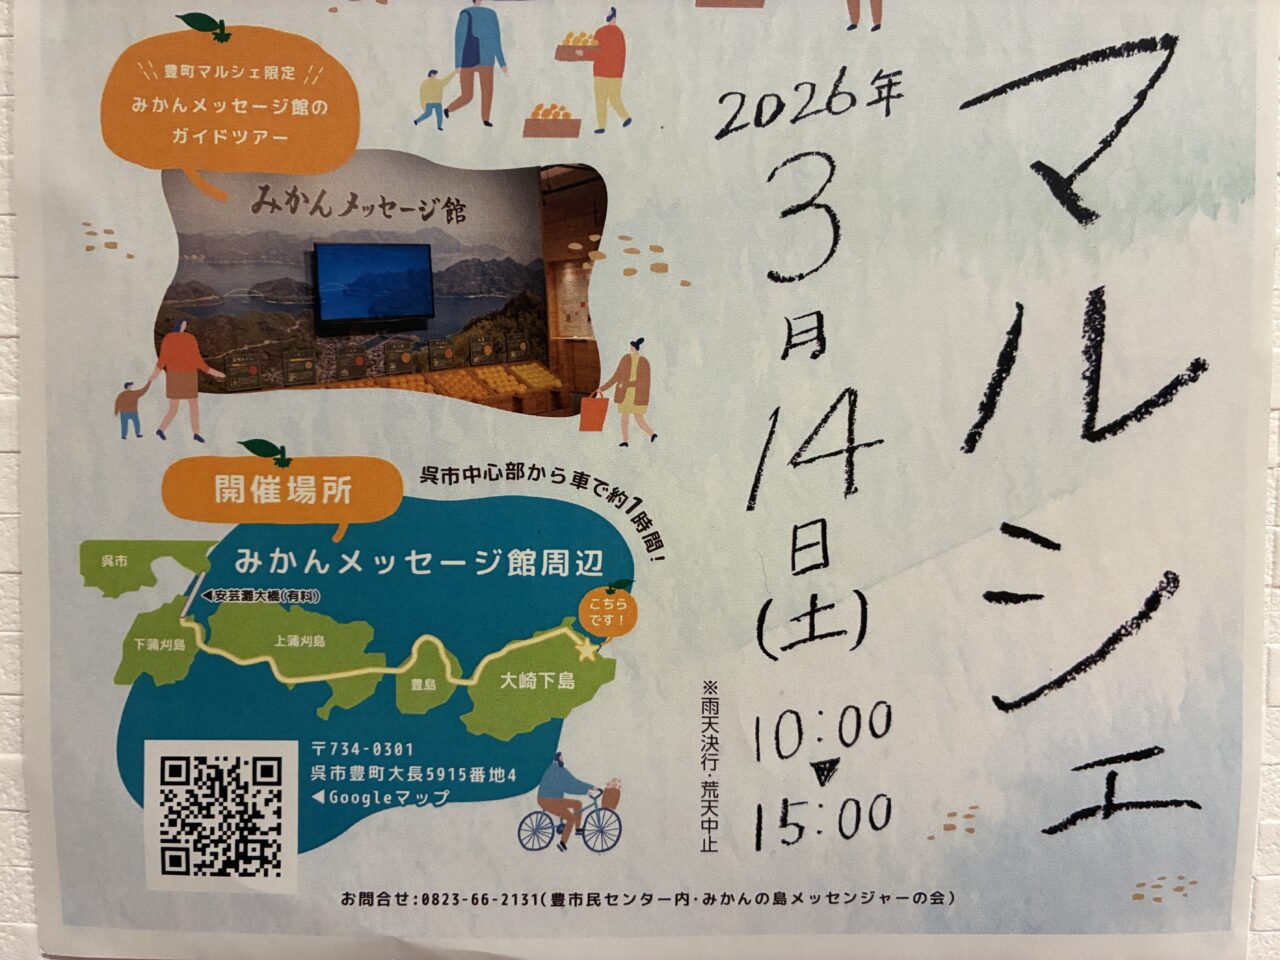 マルシェ
2026年
3
月
14
日
(土)
10:00
▼
15:00
※雨天決行・荒天中止
豊町マルシェ限定
みかんメッセージ館の
ガイドツアー
みかんメッセージ館
開催場所
呉市中心部から車で約1時間!
みかんメッセージ館周辺
呉市
◀安芸灘大橋(有料)
こちら
です!
下蒲刈島
上蒲刈島
豊島
大崎下島
〒734-0301
呉市豊町大長5915番地4
◀Googleマップ
お問合せ:0823-66-2131(豊市民センター内・みかんの島メッセンジャーの会)